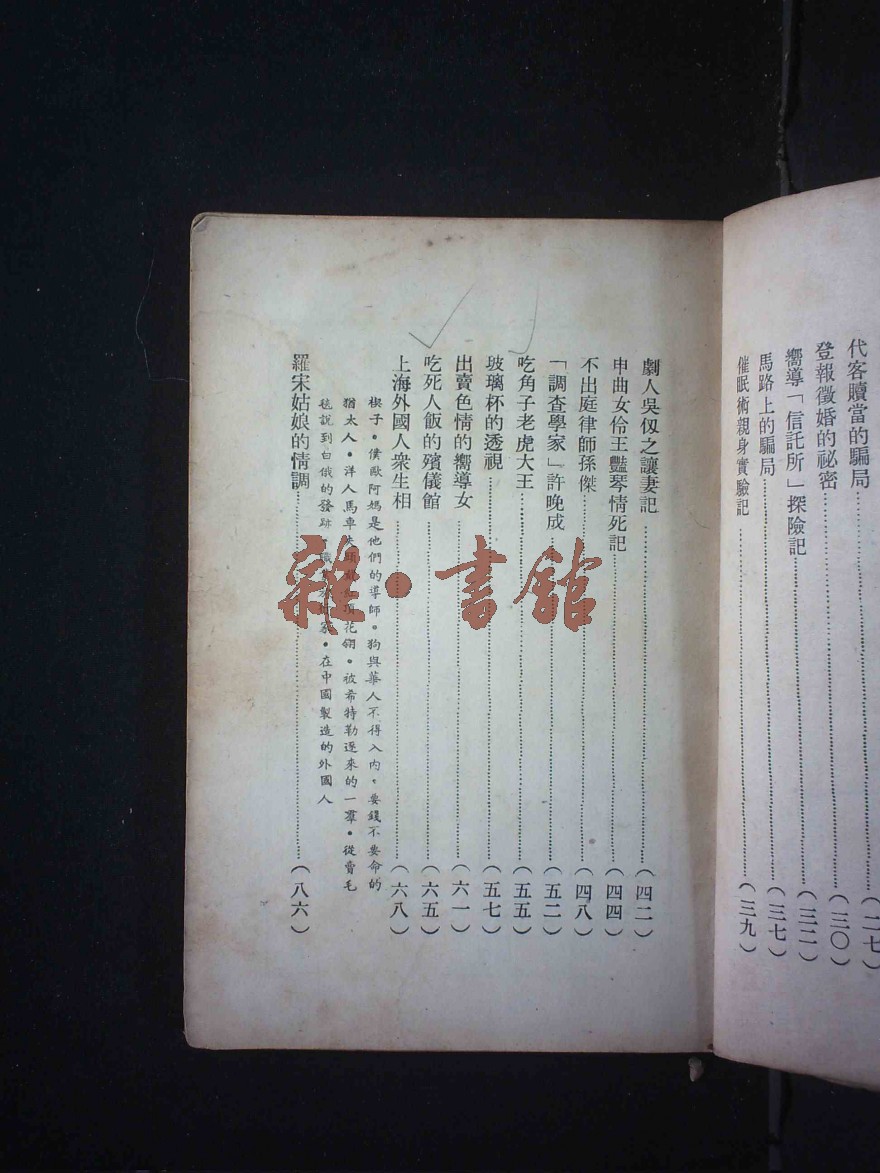 代客贖當的騙局……(二七)
登報徵婚的祕密……(三〇)
嚮導「信託所」探險記……(三二)
馬路上的騙局……(三七)
催眠術親身實驗記……(三九)
劇人吳仭之讓妻記……(四二)
申曲女伶王豔琴情死記……(四四)
不出庭律師孫傑……(四八)
「調查學家」許晚成……(五二)
吃角子老虎大王……(五五)
玻璃杯的透視……(五七)
出賣色情的嚮導女……(六一)
吃死人飯的殯儀館……(六五)
上海外國人衆生相……(六八)
楔子・儍歐阿媽是他們的導師・狗與華人不得入內・要錢不要命的
猶太人・洋人馬車夫頭 花翎・被希特勒逐來的一羣・從賣毛
毯說到白俄的發跡 ・在中國製造的外國人
羅宋姑娘的情調……(八六)
雜・書館